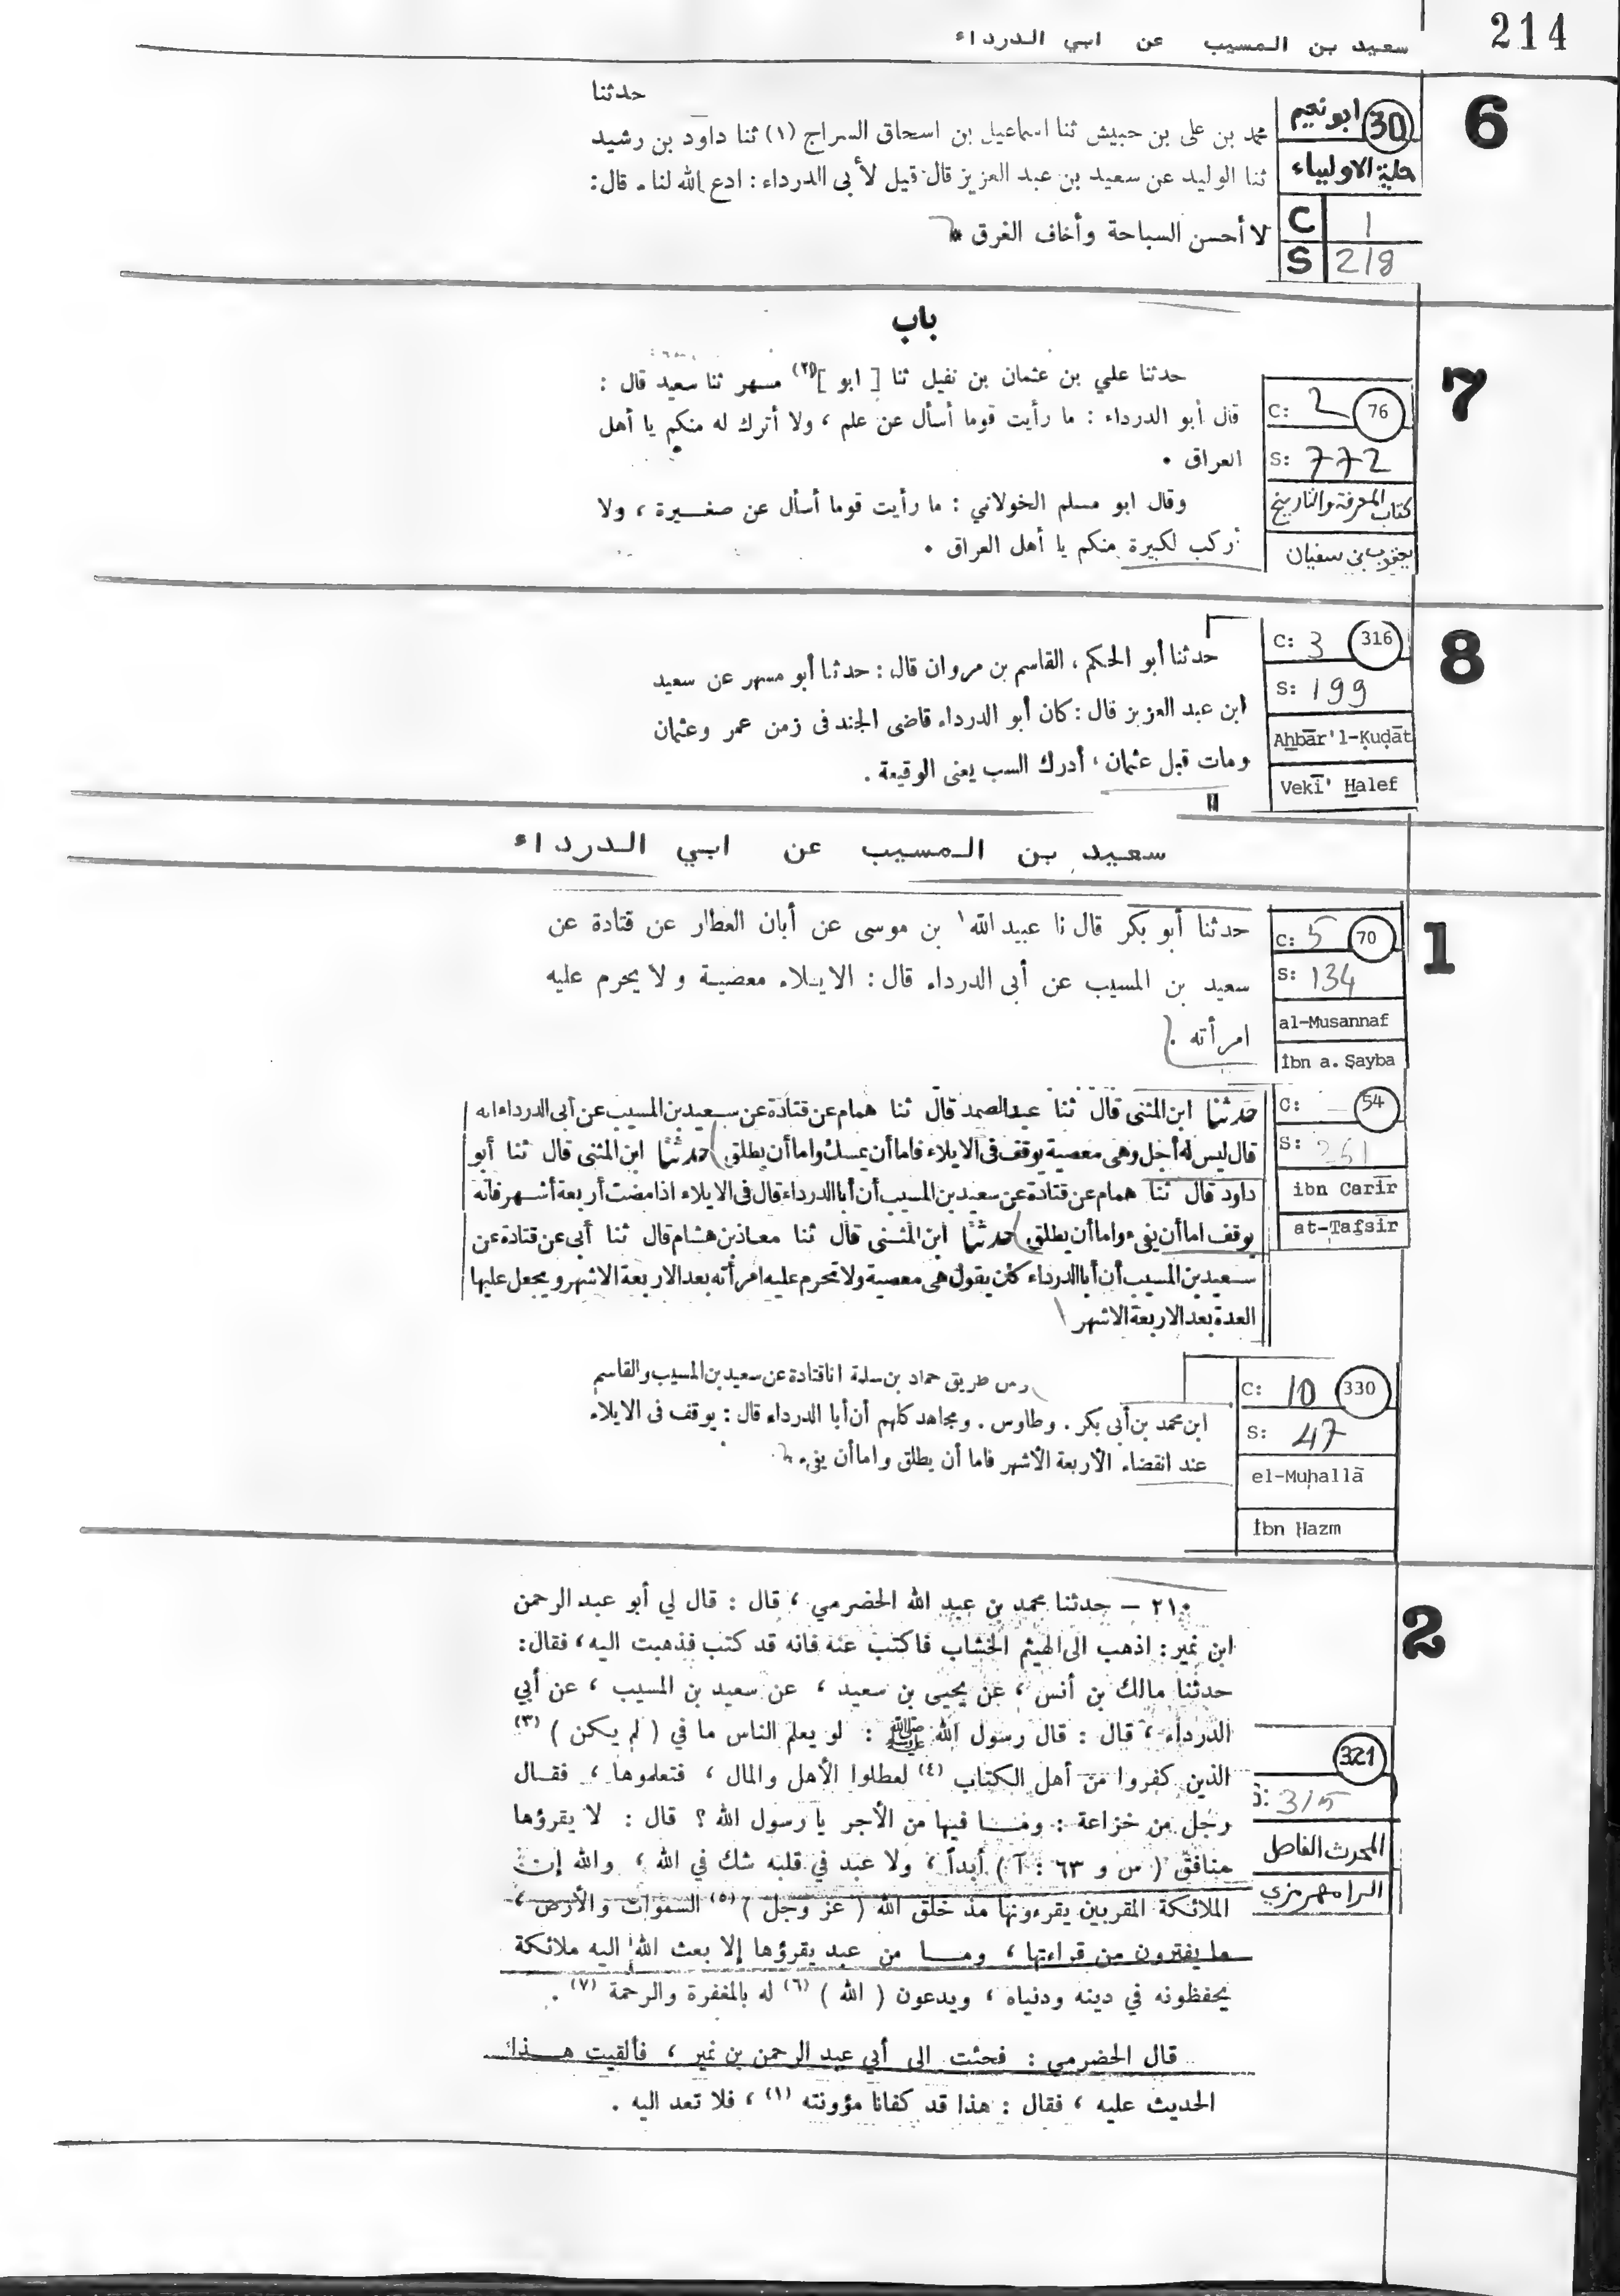 214
سعيد بن المسيب عن ابي الدرداء
6
30 ابو نعيم
حلية الاولياء
C 1
S 218
حدثنا
محمد بن على بن حبيش ثنا اسماعيل بن اسحاق السراج (١) ثنا داود بن رشيد
ثنا الوليد عن سعيد بن عبد العزيز قال قيل لأبى الدرداء : ادع الله لنا . قال :
لا أحسن السباحة وأخاف الغرق *
باب
7
C: 2 76
S: 772
كتاب المعرفة والتاريخ
يعقوب بن سفيان
حدثنا علي بن عثمان بن نفيل ثنا [ ابو ](٢) مسهر ثنا سعيد قال :
قال أبو الدرداء : ما رأيت قوما أسأل عن علم ، ولا أترك له منكم يا أهل
العراق .
وقال ابو مسلم الخولاني : ما رأيت قوما أسأل عن صغيرة ، ولا
أركب لكبيرة منكم يا أهل العراق .
8
C: 3 316
S: 199
Aḫbār'l-Ḳuḍāt
Vekī' Ḫalef
حدثنا أبو الحكم ، القاسم بن مروان قال : حدثنا أبو مسهر عن سعيد
ابن عبد العزيز قال : كان أبو الدرداء قاضى الجند فى زمن عمر وعثمان
ومات قبل عثمان ، أدرك السب يعنى الوقيعة .
سعيد بن المسيب عن ابي الدرداء
1
C: 5 70
S: 134
al-Musannaf
İbn a. Şayba
حدثنا أبو بكر قال نا عبيد الله ١ بن موسى عن أبان العطار عن قتادة عن
سعيد بن المسيب عن أبى الدرداء قال : الايلاء معصية و لا يحرم عليه
امرأته .
C: — 54
S: 261
ibn Carīr
at-Tafsīr
حدثنا ابن المثنى قال ثنا عبد الصمد قال ثنا همام عن قتادة عن سعيد بن المسيب عن أبى الدرداء انه
قال ليس له أجل وهى معصية يوقف فى الايلاء فاما أن يمسك واما أن يطلق حدثنا ابن المثنى قال ثنا أبو
داود قال ثنا همام عن قتادة عن سعيد بن المسيب أن أبا الدرداء قال فى الايلاء اذا مضت أربعة أشهر فانه
يوقف اما أن يفىء واما أن يطلق حدثنا ابن المثنى قال ثنا معاذ بن هشام قال ثنا أبى عن قتادة عن
سعيد بن المسيب أن أبا الدرداء كان يقول هى معصية ولا تحرم عليه امرأته بعد الاربعة الاشهر ويجعل عليها
العدة بعد الاربعة الاشهر
C: 10 330
S: 47
el-Muḥallā
İbn Ḥazm
ومن طريق حماد بن سلمة انا قتادة عن سعيد بن المسيب والقاسم
ابن محمد بن أبى بكر . وطاوس . ومجاهد كلهم أن أبا الدرداء قال : يوقف فى الايلاء
عند انقضاء الأربعة الأشهر فاما أن يطلق واما أن يفىء
2
321
S: 315
المحدث الفاصل
الرامهرمزي
٢١٠ – حدثنا محمد بن عبد الله الحضرمي ، قال : قال لي أبو عبد الرحمن
ابن نمير : اذهب الى الهيثم الخشاب فاكتب عنه فانه قد كتب فذهبت اليه ، فقال :
حدثنا مالك بن أنس ، عن يحيى بن سعيد ، عن سعيد بن المسيب ، عن أبي
الدرداء ، قال : قال رسول الله ﷺ : لو يعلم الناس ما في ( لم يكن ) (٣)
الذين كفروا من أهل الكتاب (٤) لعطلوا الأهل والمال ، فتعلموها ، فقال
رجل من خزاعة : وما فيها من الأجر يا رسول الله ؟ قال : لا يقرؤها
منافق ( س و ٦٣ : آ ) أبداً ، ولا عبد في قلبه شك في الله ، والله إن
الملائكة المقربين يقرءونها مذ خلق الله ( عز وجل ) (٥) السموات والأرض ،
ما يفترون من قراءتها ، وما من عبد يقرؤها إلا بعث الله اليه ملائكة
يحفظونه في دينه ودنياه ، ويدعون ( الله ) (٦) له بالمغفرة والرحمة (٧) .
قال الحضرمي : فجئت الى أبي عبد الرحمن بن نمير ، فألقيت هذا
الحديث عليه ، فقال : هذا قد كفانا مؤونته (١) ، فلا تعد اليه .